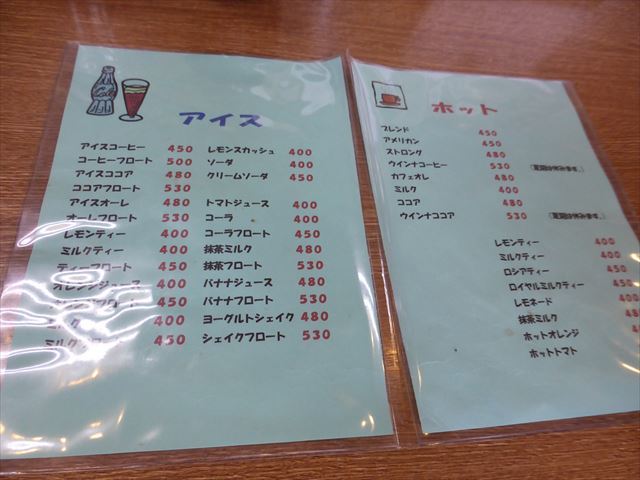 アイス
アイスコーヒー 450
コーヒーフロート 500
アイスココア 480
ココアフロート 530
アイスオーレ 480
オーレフロート 530
レモンティー 400
ミルクティー 400
ティーフロート 450
オレンジジュース 400
450
ミルク 400
ミルクフロート 450
レモンスカッシュ 400
ソーダ 400
クリームソーダ 450
トマトジュース 400
コーラ 400
コーラフロート 450
抹茶ミルク 480
抹茶フロート 530
バナナジュース 480
バナナフロート 530
ヨーグルトシェイク 480
シェイクフロート 530
ホット
ブレンド 450
アメリカン 450
ストロング 480
ウインナコーヒー 530
カフェオレ 480
ミルク 400
ココア 480
ウインナココア 530
レモンティー 400
ミルクティー 400
ロシアティー 450
ロイヤルミルクティー 450
レモネード
抹茶ミルク
ホットオレンジ
ホットトマト